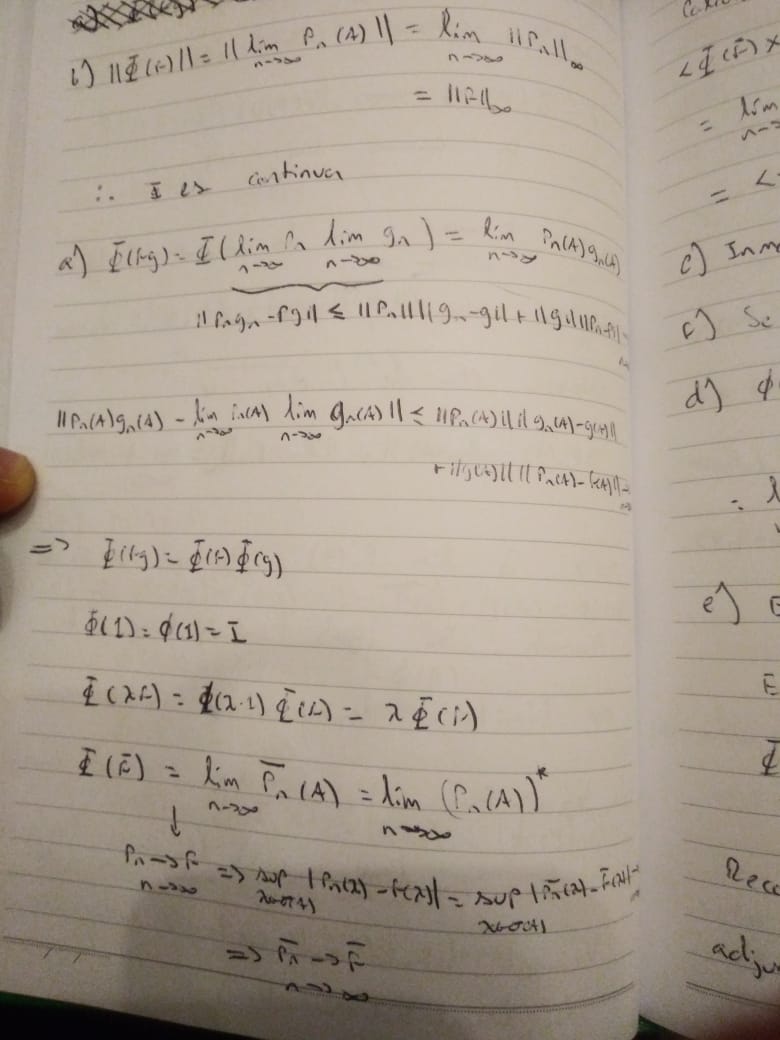 b) ||Φ(f)|| = || lim_{n→∞} P_n(A) || = lim_{n→∞} ||P_n||_∞
= ||f||_∞
∴ Φ es continua
a) Φ(fg) = Φ( lim_{n→∞} P_n lim_{n→∞} g_n ) = lim_{n→∞} P_n(A) g_n(A)
||P_n g_n - fg|| ≤ ||P_n|| ||g_n - g|| + ||g|| ||P_n - f|| →
||P_n(A) g_n(A) - lim_{n→∞} P_n(A) lim_{n→∞} g_n(A)|| ≤ ||P_n(A)|| || g_n(A) - g(A)||
+ ||g(A)|| || P_n(A) - f(A)|| →
=> Φ(fg) = Φ(f) Φ(g)
Φ(1) = φ(1) = I
Φ(λf) = Φ(λ·1) Φ(f) = λ Φ(f)
Φ(f̄) = lim_{n→∞} P̄_n(A) = lim_{n→∞} (P_n(A))*
↓
P_n → f n→∞ => sup_{λ∈σ(A)} |P_n(λ) - f(λ)| = sup_{λ∈σ(A)} |P̄_n(λ) - f̄(λ)| →
=> P̄_n → f̄
n→∞
<
= lim
= <
c)
c) Se
d) φ
=
e) E
E
Φ